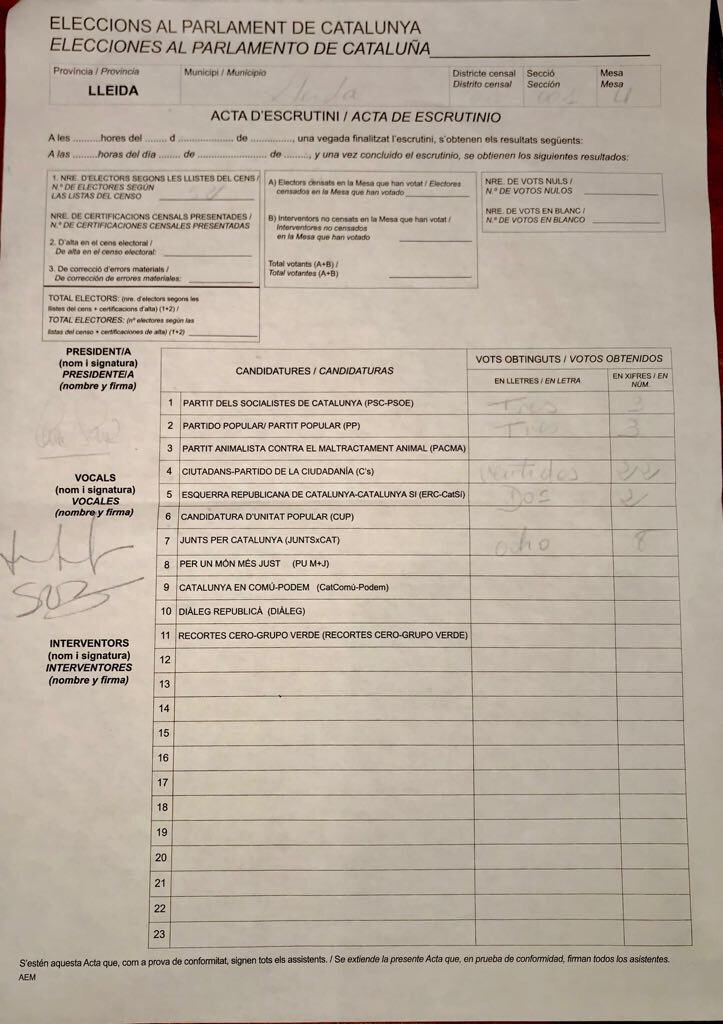 ELECCIONS AL PARLAMENT DE CATALUNYA
ELECCIONES AL PARLAMENTO DE CATALUÑA
Província / Provincia
LLEIDA
Municipi / Municipio
Lleida
Districte censal
Distrito censal
Secció
Sección
Mesa
Mesa
ACTA D'ESCRUTINI / ACTA DE ESCRUTINIO
A les ..........hores del ....... d .................... de ..............., una vegada finalitzat l'escrutini, s'obtenen els resultats següents:
A las ..........horas del día ....... de ......................... de ........, y una vez concluido el escrutinio, se obtienen los siguientes resultados:
1. NRE. D'ELECTORS SEGONS LES LLISTES DEL CENS /
N.º DE ELECTORES SEGÚN
LAS LISTAS DEL CENSO
NRE. DE CERTIFICACIONS CENSALS PRESENTADES /
N.º DE CERTIFICACIONES CENSALES PRESENTADAS
2. D'alta en el cens electoral /
De alta en el censo electoral:
3. De correcció d'errors materials /
De corrección de errores materiales:
TOTAL ELECTORS: (nre. d'electors segons les
llistes del cens + certificacions d'alta) (1+2) /
TOTAL ELECTORES: (nº electores según las
listas del censo + certificaciones de alta) (1+2)
A) Electors censats en la Mesa que han votat / Electores
censados en la Mesa que han votado
B) Interventors no censats en la Mesa que han votat /
Interventores no censados
en la Mesa que han votado
Total votants (A+B) /
Total votantes (A+B)
NRE. DE VOTS NULS /
N.º DE VOTOS NULOS
NRE. DE VOTS EN BLANC /
N.º DE VOTOS EN BLANCO
PRESIDENT/A
(nom i signatura)
PRESIDENTE/A
(nombre y firma)
VOCALS
(nom i signatura)
VOCALES
(nombre y firma)
INTERVENTORS
(nom i signatura)
INTERVENTORES
(nombre y firma)
CANDIDATURES / CANDIDATURAS
VOTS OBTINGUTS / VOTOS OBTENIDOS
EN LLETRES / EN LETRA
EN XIFRES / EN
NÚM.
1 PARTIT DELS SOCIALISTES DE CATALUNYA (PSC-PSOE) Tres 3
2 PARTIDO POPULAR/ PARTIT POPULAR (PP) Tres 3
3 PARTIT ANIMALISTA CONTRA EL MALTRACTAMENT ANIMAL (PACMA)
4 CIUTADANS-PARTIDO DE LA CIUDADANÍA (C's) Ventidos 22
5 ESQUERRA REPUBLICANA DE CATALUNYA-CATALUNYA SI (ERC-CatSí) Dos 2
6 CANDIDATURA D'UNITAT POPULAR (CUP)
7 JUNTS PER CATALUNYA (JUNTSxCAT) ocho 8
8 PER UN MÓN MÉS JUST (PU M+J)
9 CATALUNYA EN COMÚ-PODEM (CatComú-Podem)
10 DIÀLEG REPUBLICÀ (DIÀLEG)
11 RECORTES CERO-GRUPO VERDE (RECORTES CERO-GRUPO VERDE)
12
13
14
15
16
17
18
19
20
21
22
23
S'estén aquesta Acta que, com a prova de conformitat, signen tots els assistents. / Se extiende la presente Acta que, en prueba de conformidad, firman todos los asistentes.
AEM